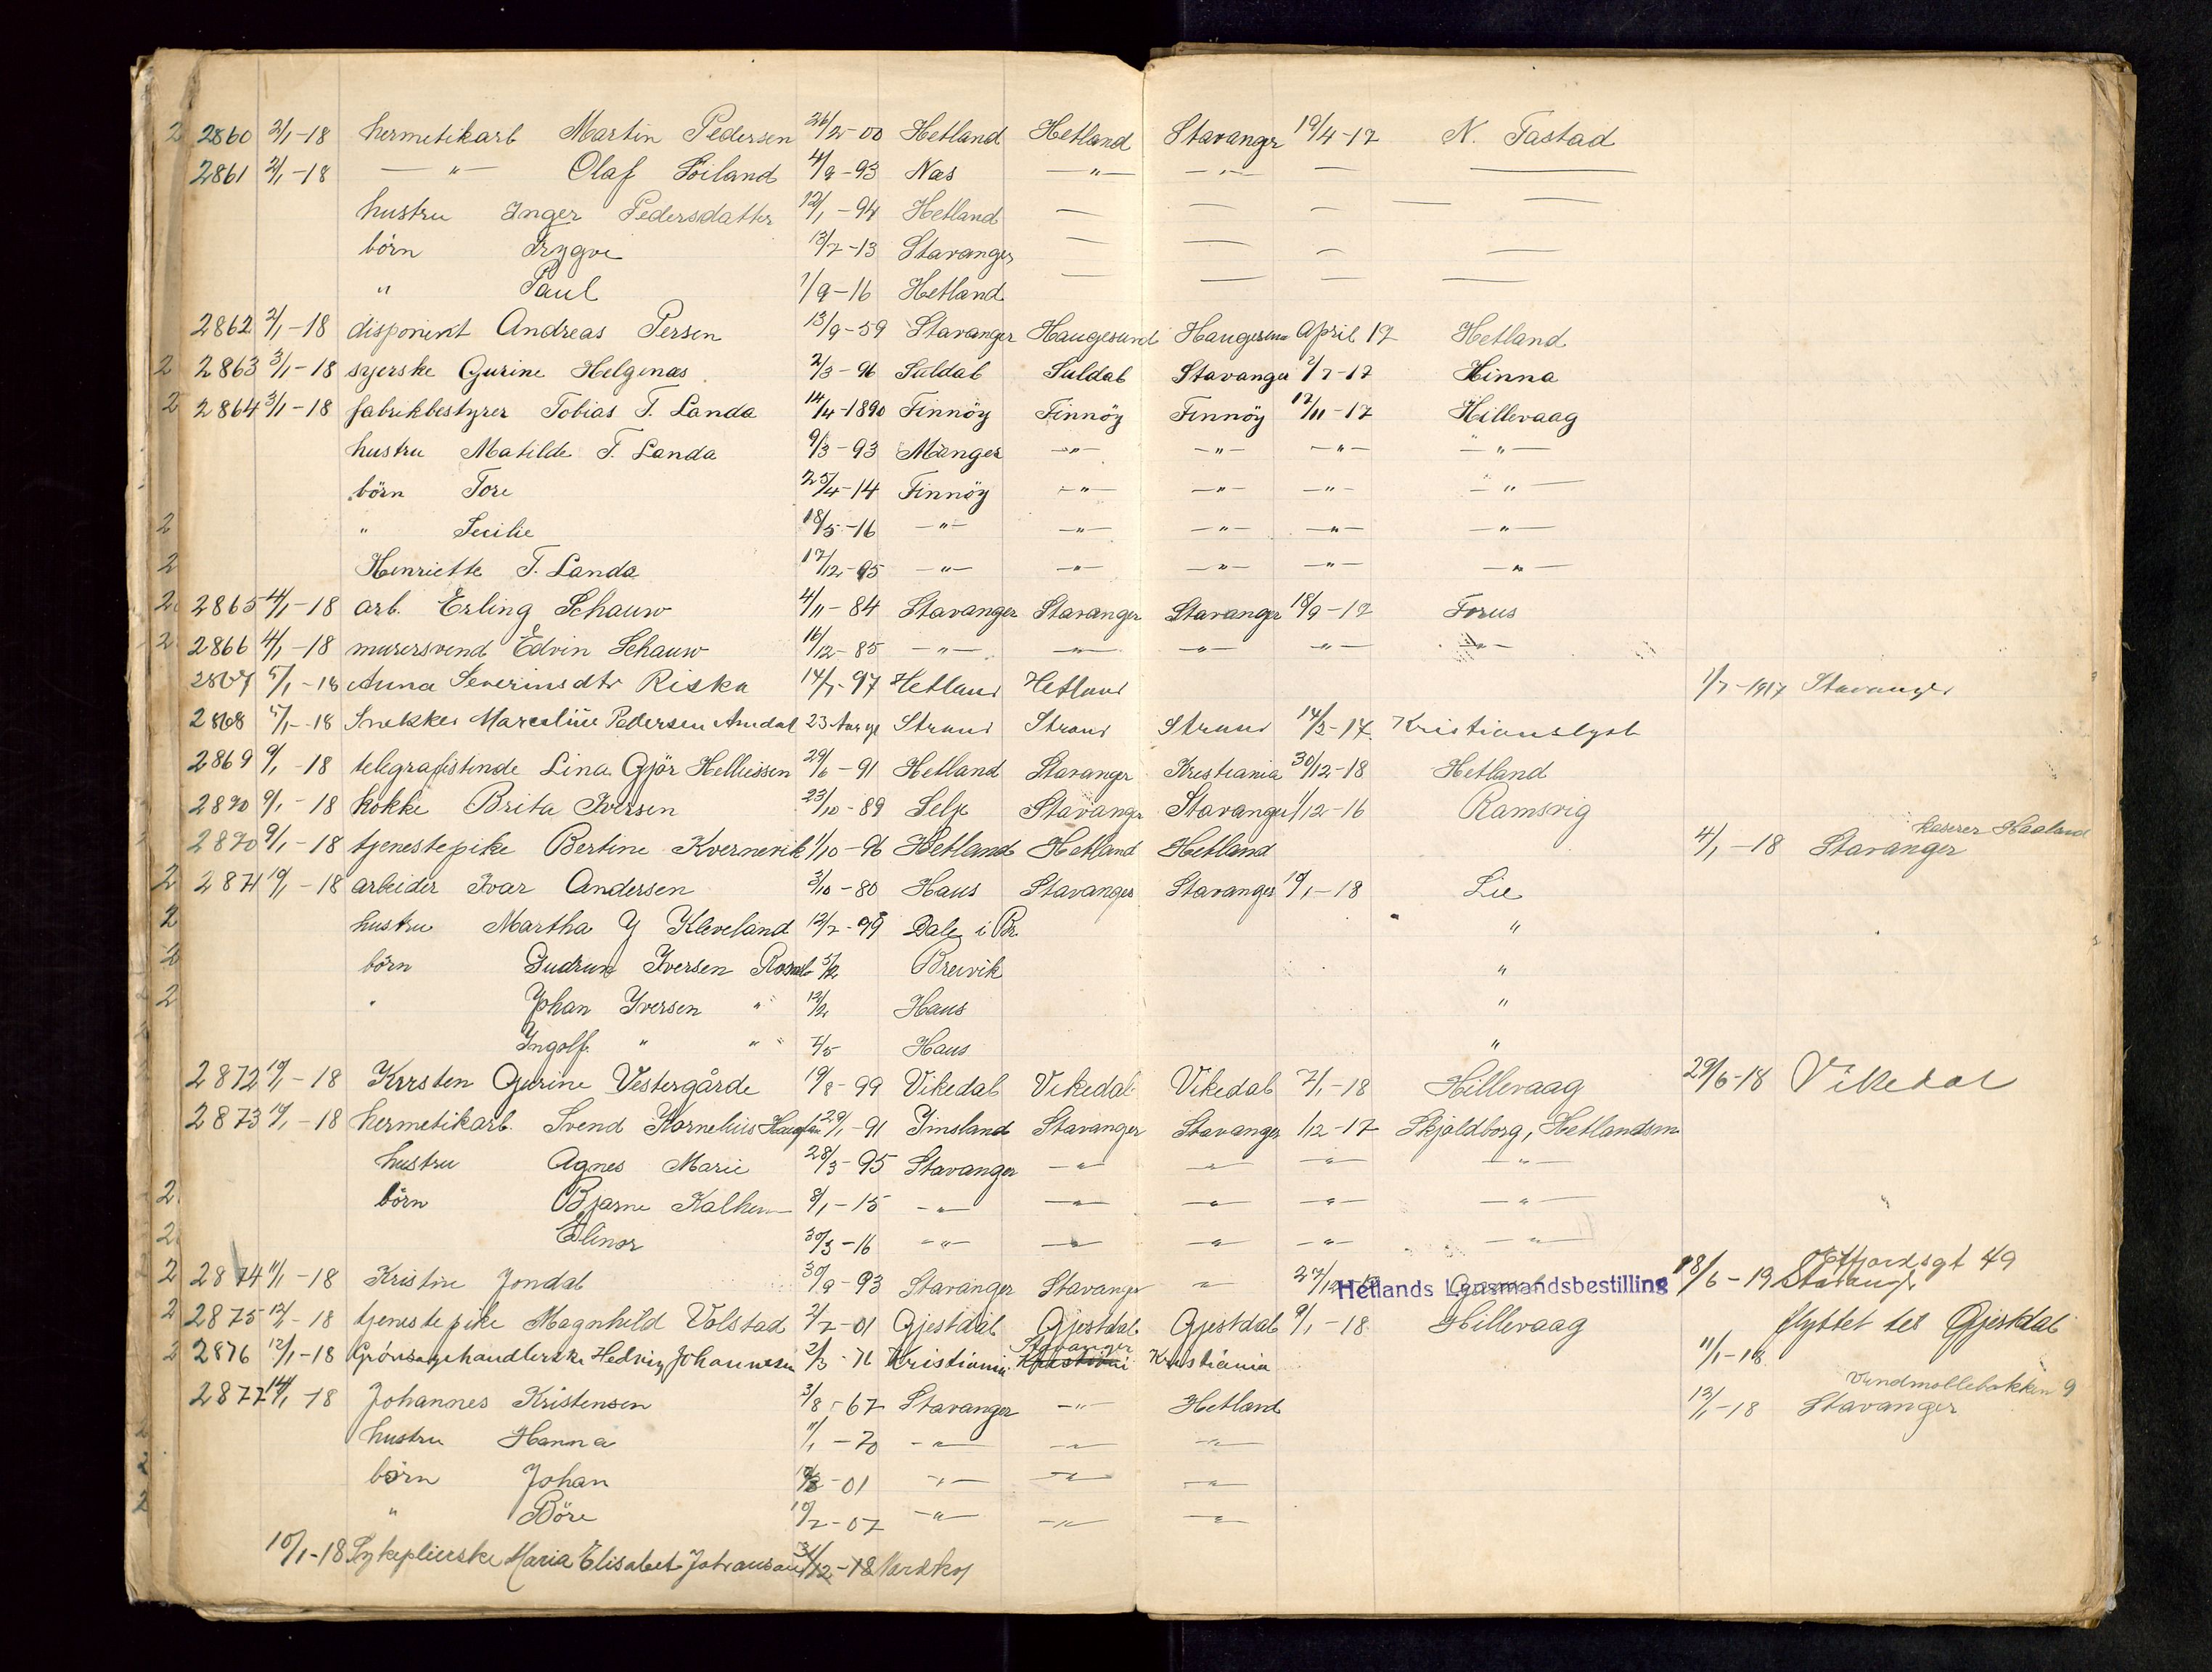 2 2860 2/1-18 hermetikarb Martin Pedersen 26/2-00 Hetland Hetland Stavanger 19/4-17 N. Tastad
2861 2/1-18 — " — Olaf Soiland 4/9-93 Nas — " — — " — — —
hustru Inger Pedersdatter 12/1-94 Hetland — — — — —
börn Trygve 13/7-13 Stavanger — — — —
" Paul 7/9-16 Hetland — — — —
2862 2/1-18 disponent Andreas Persen 13/9-59 Stavanger Haugesund Haugesun April 17 Hetland
2 2863 3/1-18 syerske Gurine Helgenæs 2/3-96 Suldal Suldal Stavanger 2/7-17 Hinna
2 2864 3/1-18 fabrikbestyrer Tobias T. Landa 14/4-1890 Finnöy Finnöy Finnöy 17/11-17 Hillevaag
hustru Matilde T. Landa 9/3-93 Manger — " — — " — — " — — " —
börn Tore 25/4-14 Finnöy — " — — " — — " — — " —
2 " Secilie 18/5-16 — " — — " — — " — — " — — " —
2 Henriette T. Landa 17/12-95 — " — — " — — " — — " — — " —
2 2865 4/1-18 arb. Erling Schauw 4/11-84 Stavanger Stavanger Stavanger 18/9-17 Forus
2 2866 4/1-18 murersvend Edvin Schauw 16/12-85 — " — — " — — " — — " — — " —
2867 5/1-18 Anna Severinsdtr Riska 14/7-97 Hetland Hetland 1/7-1917 Stavanger
2868 5/1-18 Snekker Marcelius Pedersen Amdal 23 Strand Strand Strand 14/3-17 Kristianslyst
2869 9/1-18 telegrafistinde Lina Gjör Helliessen 29/6-91 Hetland Stavanger Kristiania 30/12-18 Hetland
2870 9/1-18 kokke Brita Iversen 23/10-89 Selje Stavanger Stavanger 1/12-16 Ramsvig
2870 9/1-18 tjenestepike Bertine Kvernevik 1/10-96 Hetland Hetland Hetland 4/1-18 Stavanger kaserer Haaland
2 2871 10/1-18 arbeider Ivar Andersen 3/10-80 Haus Stavanger Stavanger 10/1-18 Lie
2 hustru Martha Y Kleveland 12/7-99 Dale i Br. "
2 börn Gudrun Iversen 5/12 Breivik "
2 " Johan Iversen " 12/2 Haus "
Ingolf " " " 7/5 Haus "
2872 10/1-18 Kirsten Gurine Vestergårde 19/8-99 Vikedal Vikedal Vikedal 7/1-18 Hillevaag 29/6-18 Vikedal
2873 10/1-18 hermetikarb. Svend Kornelius 29/1-91 Imsland Stavanger Stavanger 1/12-17 Skjoldborg, Hetlandsm
hustru Agnes Marie 28/3-95 Stavanger — " — — " — — " — — " —
2 börn Bjarne 8/1-15 — " — — " — — " — — " — — " —
2 Elinor 30/3-16 — " — — " — — " — — " — — " —
2 2874 11/1-18 Kristine Jondal 30/9-93 Stavanger Stavanger — " — 27/12 Hetlands Lensmandsbestilling 18/6-19 Stavanger Ølfjordsgt 49
2 2875 12/1-18 tjenestepike Magnhild Volstad 2/7-01 Gjestdal Gjestdal Gjestdal 9/1-18 Hillevaag flyttet til Gjestdal
2 2876 12/1-18 Grönsagehandlerske Hedvig Johannesen 2/3-76 Kristiania Stavanger Kristiania 11/1-18
2877 14/1-18 Johannes Kristensen 3/8-67 Stavanger — " — Hetland 12/1-18 Stavanger Vindmöllebakken 9
2 hustru Hanna 11/1-70 — " — — " — — " —
2 börn Johan -01 — " — — " — — " —
2 " Böre 10/7-07 — " — — " — — " —
10/1-18 Sykepleierske Maria Elisabet Johansen 31/12-18